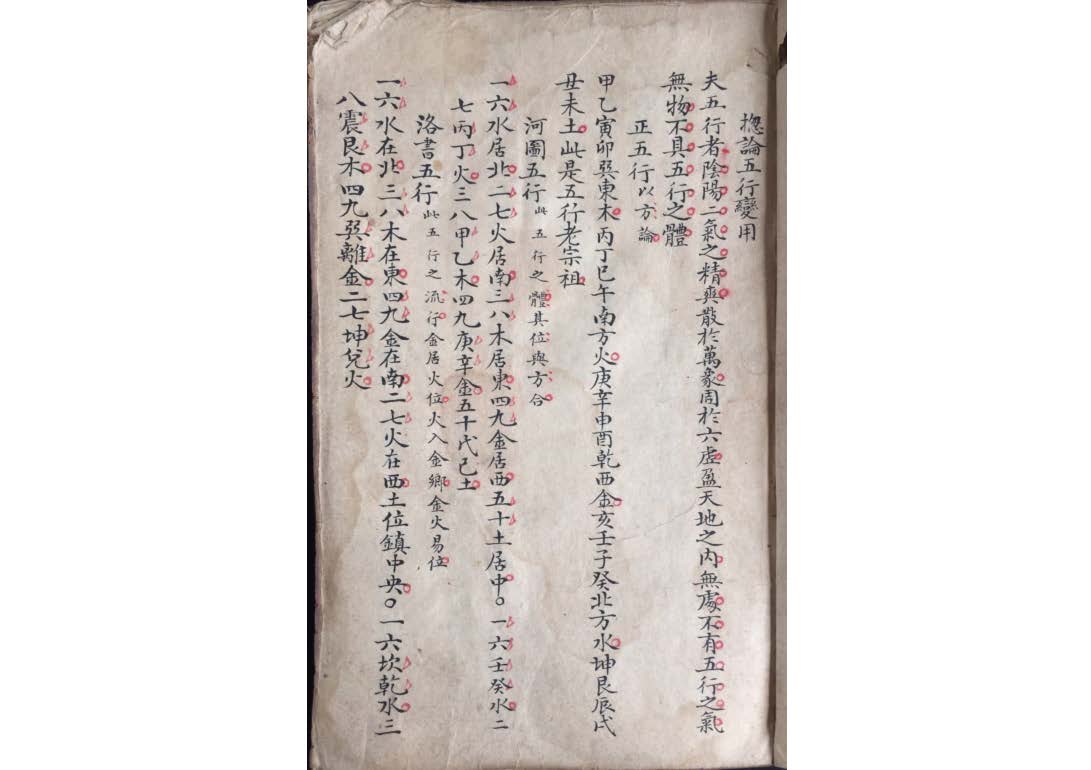 捴論五行變用
夫五行者陰陽二氣之精爽散於萬象周於六虛盈天地之内無處不有五行之氣
無物不具五行之體
正五行以方論
甲乙寅卯巽東木丙丁巳午南方火庚辛申酉乾西金亥壬子癸北方水坤艮辰戌
丑未土此是五行老宗祖
河圖五行此五行之體其位與方合
一六水居北二七火居南三八木居東四九金居西五十土居中○一六壬癸水二
七丙丁火三八甲乙木四九庚辛金五十戊己土
洛書五行此五行之流行金居火位火入金鄉金火易位
一六水在北三八木在東四九金在南二七火在西土位鎮中央○一六坎乾水三
八震艮木四九巽離金二七坤兌火